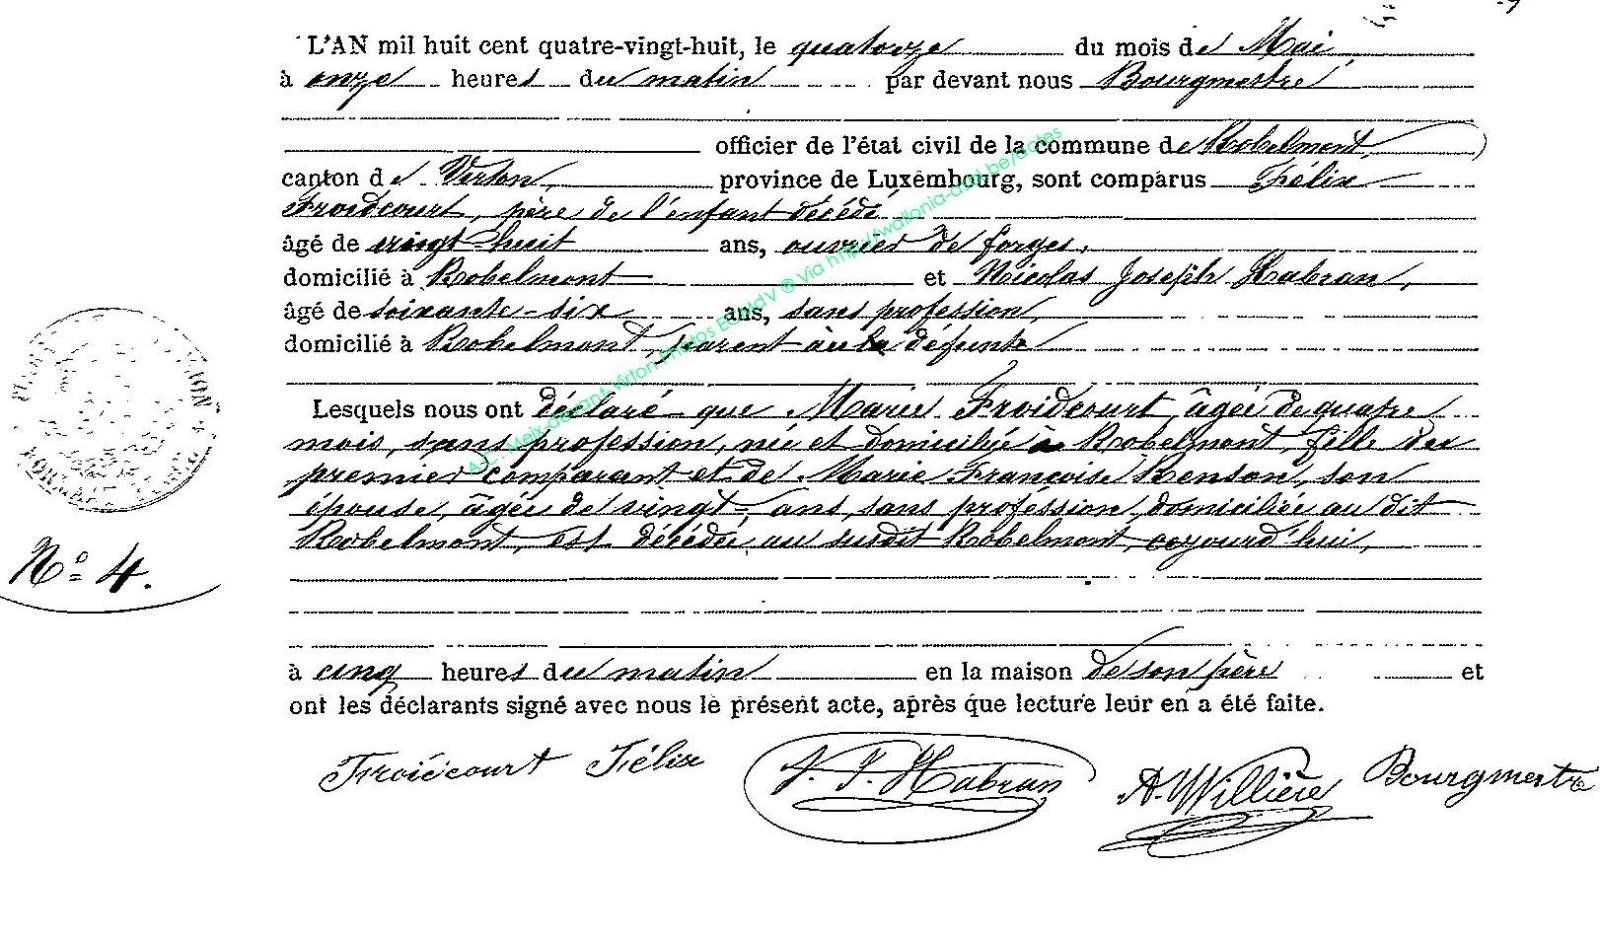 L'AN mil huit cent quatre-vingt-huit, le quatorze du mois de Mai
à onze heures du matin par devant nous Bourgmestre
officier de l'état civil de la commune de Robelmont,
canton de Virton, province de Luxembourg, sont comparus Félix
Froidcourt, père de l'enfant décédé
âgé de vingt-huit ans, ouvrier de forges,
domicilié à Robelmont et Nicolas Joseph Habran,
âgé de soixante-six ans, sans profession,
domicilié à Robelmont, parent à la défunte
Lesquels nous ont déclaré que Marie Froidcourt, âgée de quatre
mois, sans profession, née et domiciliée à Robelmont, fille du
premier comparant et de Marie Françoise Henson, son
épouse, âgée de vingt- ans, sans proféssion, domiciliée au dit
Robelmont, est décédée, au susdit Robelmont, cejourd'hui,
N° 4.
à cinq heures du matin en la maison de son père et
ont les déclarants signé avec nous le présent acte, après que lecture leur en a été faite.
Froidcourt Félix J. J. Habran A. Willière Bourgmestre
A.C. Meix-devant-Virton Photos EGMdV @ Via http://wallonia-asbl.be/actes